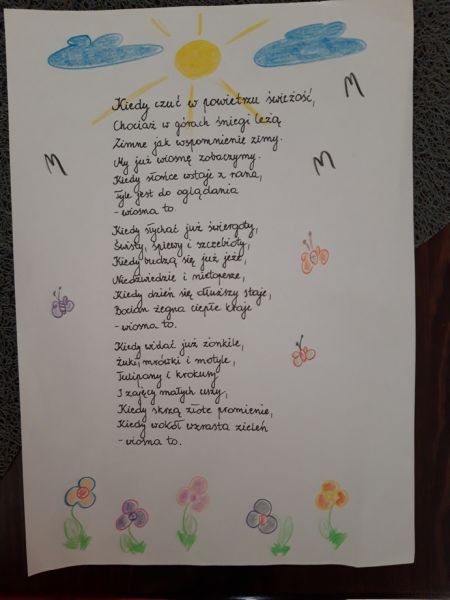 Kiedy czuć w powietrzu świeżość,
Chociaż w górach śniegi leżą
Zimne jak wspomnienie zimy.
My już wiosnę zobaczymy.
Kiedy słońce wstaje z rana,
Tyle jest do oglądania
- wiosna to.
Kiedy słychać już świergoty,
Świsty, śpiewy i szczebioty,
Kiedy budzą się już jeże,
Niedźwiedzie i nietoperze,
Kiedy dzień się dłuższy staje,
Bocian żegna ciepłe kraje
- wiosna to.
Kiedy widać już żonkile,
Żuki, mrówki i motyle,
Tulipany i krokusy
I zajęcy małych uszy,
Kiedy skrzą złote promienie,
Kiedy wokół wzrasta zieleń
- wiosna to.